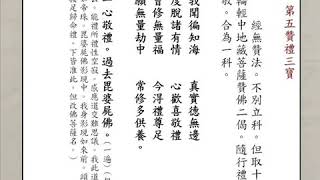 第五贊禮三寶
經無贊法。不別立科。但取十
輪經中地藏菩薩贊佛二偈。隨行禮
敬。合為一科。
我聞徧知海 真實德無邊
度脫諸有情 心歡喜敬禮
曾修無量福 今得禮尊足
願無量劫中 常修多供養。
一心敬禮。過去毘婆尸佛。(一遍)
能禮所禮性空寂。感應道交難思議。我此道
帝珠。毘婆尸佛影現中。我身影現如來前。頭
足歸命禮。下皆準此。但改佛菩薩名。)